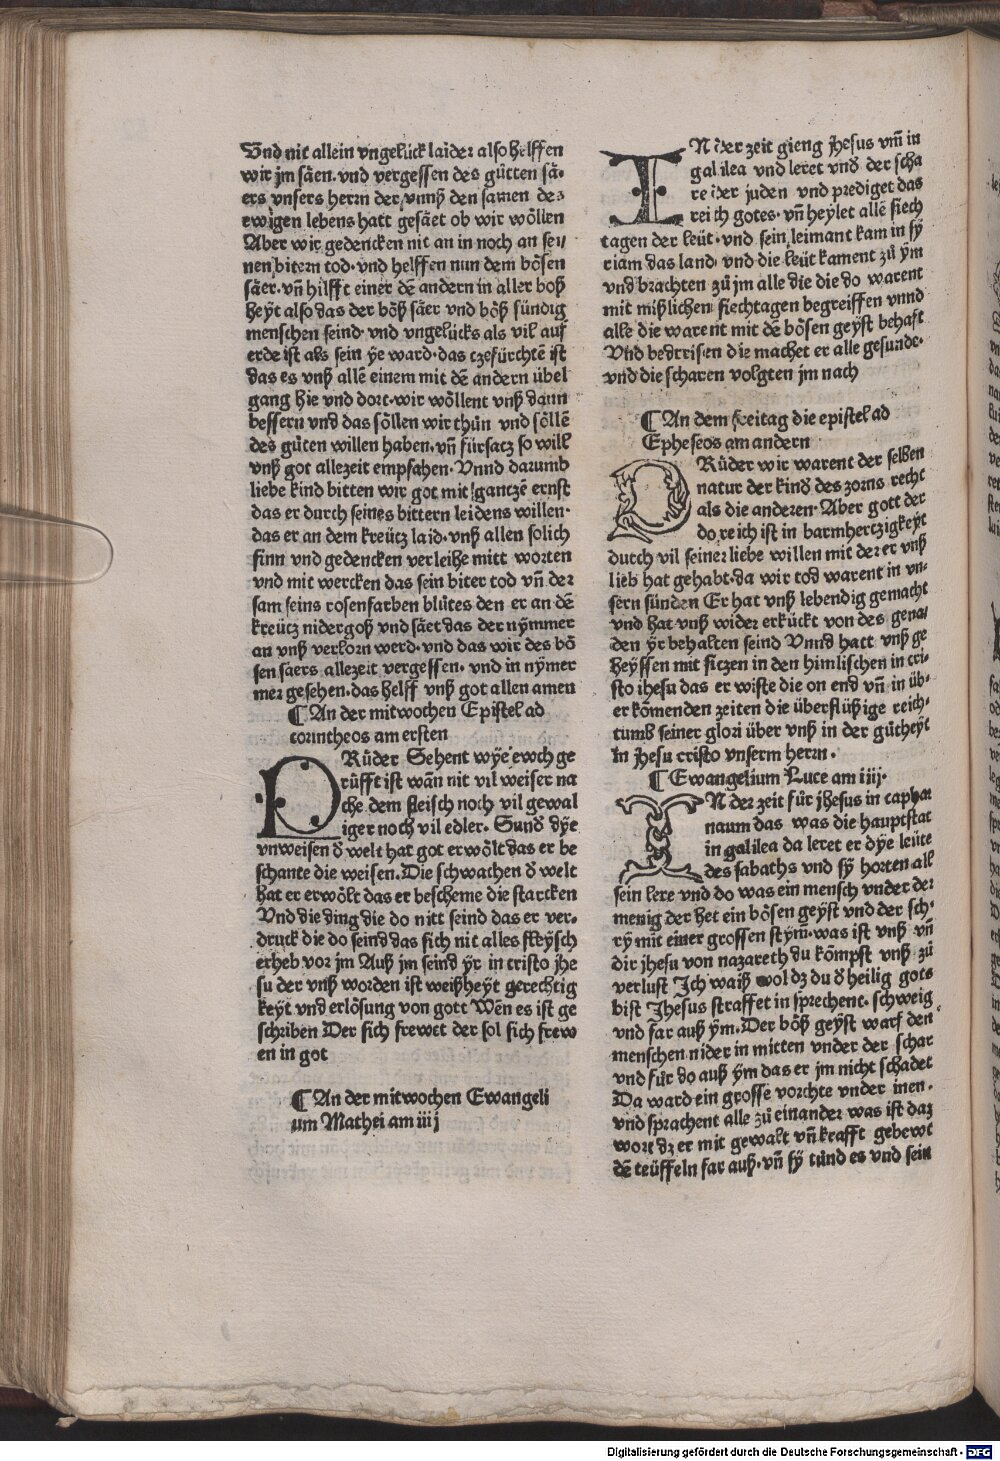 Vnd nit allein vngelück laider also helffen
wir jm säen· vnd vergessen des gütten sä·
ers vnsers herrn der vnnß den samen des
ewigen lebens hatt gesäet ob wir wöllen
Aber wir gedencken nit an in noch an sei/
nen bitern tod· vnd helffen nun dem bösen
säer· vn̄ hilfft einer dē andern in aller boß
heÿt also das der böß säer vnd böß sündig
menschen seind· vnd vngelücks als vil auf
erde ist als sein ÿe ward· das czefürchtē ist
das es vnß allē einem mit dē andern übel
gang hie vnd dort· wir wöllent vnß dann
bessern vnd das söllen wir thůn vnd söllē
des gůten willen haben· vn̄ fürsatz so will
vnß got allezeit empfahen· Vnnd darumb
liebe kind bitten wir got mit ganczē ernst
das er durch seines bittern leidens willen·
das er an dem kreütz laid· vnß allen solich
sinn vnd gedencken verleihe mitt worten
vnd mit wercken das sein biter tod vn̄ der
sam seins rosenfarben blůtes den er an dē
kreütz nidergoß vnd säet das der nÿmmer
an vnß verlorn werd· vnd das wir des bö
sen säers allezeit vergessen· vnd in nÿmer
mer gesehen· das helff vnß got allen amen
¶ An der mitwochen Epistel ad
corintheos am ersten
BRůder Sehent wÿe ewch ge
růfft ist wān nit vil weiser na
che dem fleisch noch vil gewal
tiger noch vil edler· Sunđ dÿe
vnweisen đ welt hat got erwölt das er be
schante die weisen· Die schwachen đ welt
hat er erwölt das er bescheme die starcken
Vnd die ding die do nitt seind das er ver·
druck die do seind das sich nit alles fleÿsch
erheb vor jm Auß jm seind ÿr in cristo jhe
su der vnß worden ist weißheÿt gerechtig
keÿt vnd erlösung von gott Wēn es ist ge
schriben Der sich frewet der sol sich frew
en in got
¶ An der mitwochen Ewangeli
um Mathei am iiij
IN der zeit gieng Jhesus vm̄ in
galilea vnd leret vnđ der scha
re der juden vnd prediget das
reich gotes· vn̄ heÿlet allē siech
tagen der leüt· vnd sein leimant kam in sÿ
riam das land· vnd die leüt kament zů ÿm
vnd brachten zů jm alle die die do warent
mit mißlichen siechtagen begreiffen vnnd
alle die warent mit dē bösen geÿst behaft
Vnd bedrrisen die machet er alle gesunde·
vnd die scharen volgten jm nach
¶ An dem freitag die epistel ad
Epheseos am andern
BRůder wir warent der selben
natur der kinđ des zorns recht
als die anderen· Aber gott der
do reich ist in barmherczigkeÿt
durch vil seiner liebe willen mit der er vnß
lieb hat gehabt· da wir tod warent in vn·
sern sünden Er hat vnß lebendig gemacht
vnd hat vnß wider erkückt von des gena/
den ÿr behalten seind Vnnd hatt vnß ge
heÿssen mit siczen in den himlischen in cri·
sto ihesu das er wiste die on end vn̄ in üb·
er kōmenden zeiten die überflüßige reich·
tumb seiner glori über vnß in der gůtheÿt
In Jhesu cristo vnserm herrn·
¶ Ewangelium Luce am iiij·
IN der zeit für jhesus in caphar
naum das was die hauptstat
in galilea da leret er dÿe leüte
des sabaths vnd sÿ horten all
sein lere vnd do was ein mensch vnder der
menig der het ein bösen geÿst vnd der sch·
rÿ mit einer grossen stÿm· was ist vnß vn̄
dir jhesu von nazareth du kōmpst vnß zů
verlust Jch waiß wol dz du đ heilig gots
bist Jhesus straffet in sprechent· schweig
vnd far auß ÿm· Der böß geÿst warf den
menschen nider in mitten vnder der schar
vnd für do auß ÿm das er jm nicht schadet
Da ward ein grosse vorchte vnder inen·
vnd sprachent alle zů einander was ist daz
wort dz er mit gewalt vn̄ krafft gebewt
dē teüffeln far auß· vn̄ sÿ tůnd es vnd sein
Digitalisierung gefördert durch die Deutsche Forschungsgemeinschaft - DFG